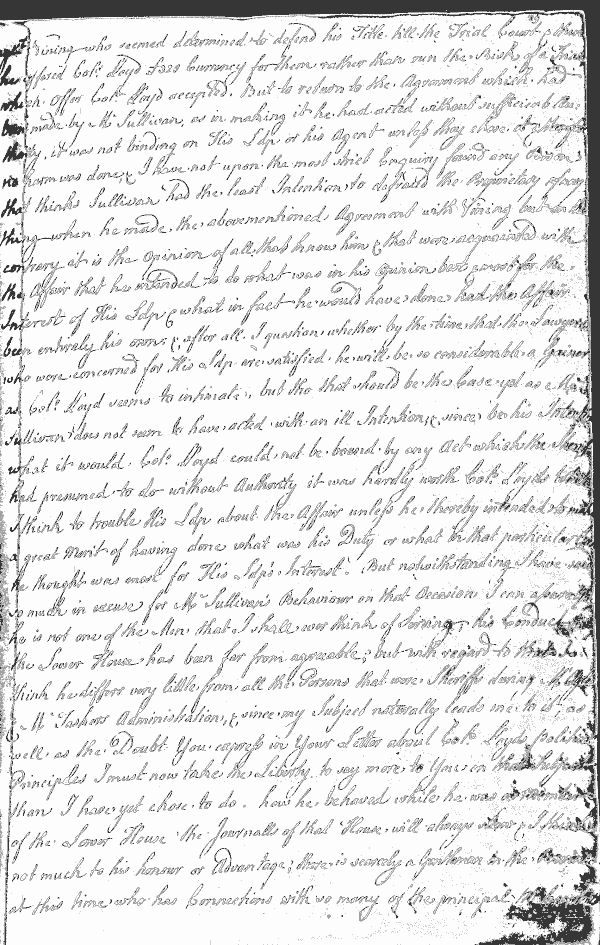 Vining who seemed determined to defend his Title till the Trial Court &
offered Colo. Lloyd £328 Currency for them rather than run the Risk of a Trial
which Offer Colo. Lloyd accepted. But to return to the Agreement which had
been made by Mr. Sullivan, as in making it he had acted without sufficient Au-
thority, it was not binding on His Ldp or his Agent unless they chose it
no harm was done & I have not upon the most strict Enquiry found any Person
that thinks Sullivan had the least Intention to defraud the Proprietary of any
thing when he made the abovementioned Agreement with Vining but on the
contrary it is the Opinion of all that know him & that were acquainted with
the Affair that he intended to do what was in his Opinion best for the
Interest of His Ldp & what in fact he would have done had the Affair
been entirely his own; & after all I question whether by the time that the Lawyers
who were concerned for His Ldp are satisfied he will be so considerable a Gainer
as Colo. Lloyd seems to intimate, but tho that should be the Case yet as Mr.
Sullivan does not seem to have acted with an ill Intention, & since be his
what it would Colo. Lloyd could not be bound by any Act which the
had presumed to do without Authority it was hardly worth Colo. Lloyds
I think to trouble His Ldp about the Affair unless he thereby intended to
a great Merit of having done what was his Duty or what in that particular
he thought was most for His Ldp's Interest. But notwithstanding I have said
so much in excuse for Mr. Sullivan's Behaviour on that Occasion I can assure
he is not one of the Men that I shall ever think of Serving, his Conduct
the Lower House has been far from agreeable; but with regard to
think he differs very little from all the Persons that were Sheriffs during Mr.
& Mr. Taskers Administration, & since my Subject naturally leads me to it as
well as the Doubt You express in Your Letter about Colo. Lloyds Political
Principles I must now take the Liberty to say more to You on that Subject
than I have yet chose to do. how he behaved while he was a Member
of the Lower House the Journalls of that House will always shew & I think
not much to his honour or Advantage; there is scarcely a Gentleman in the
at this time who has Connections with so many of the principal